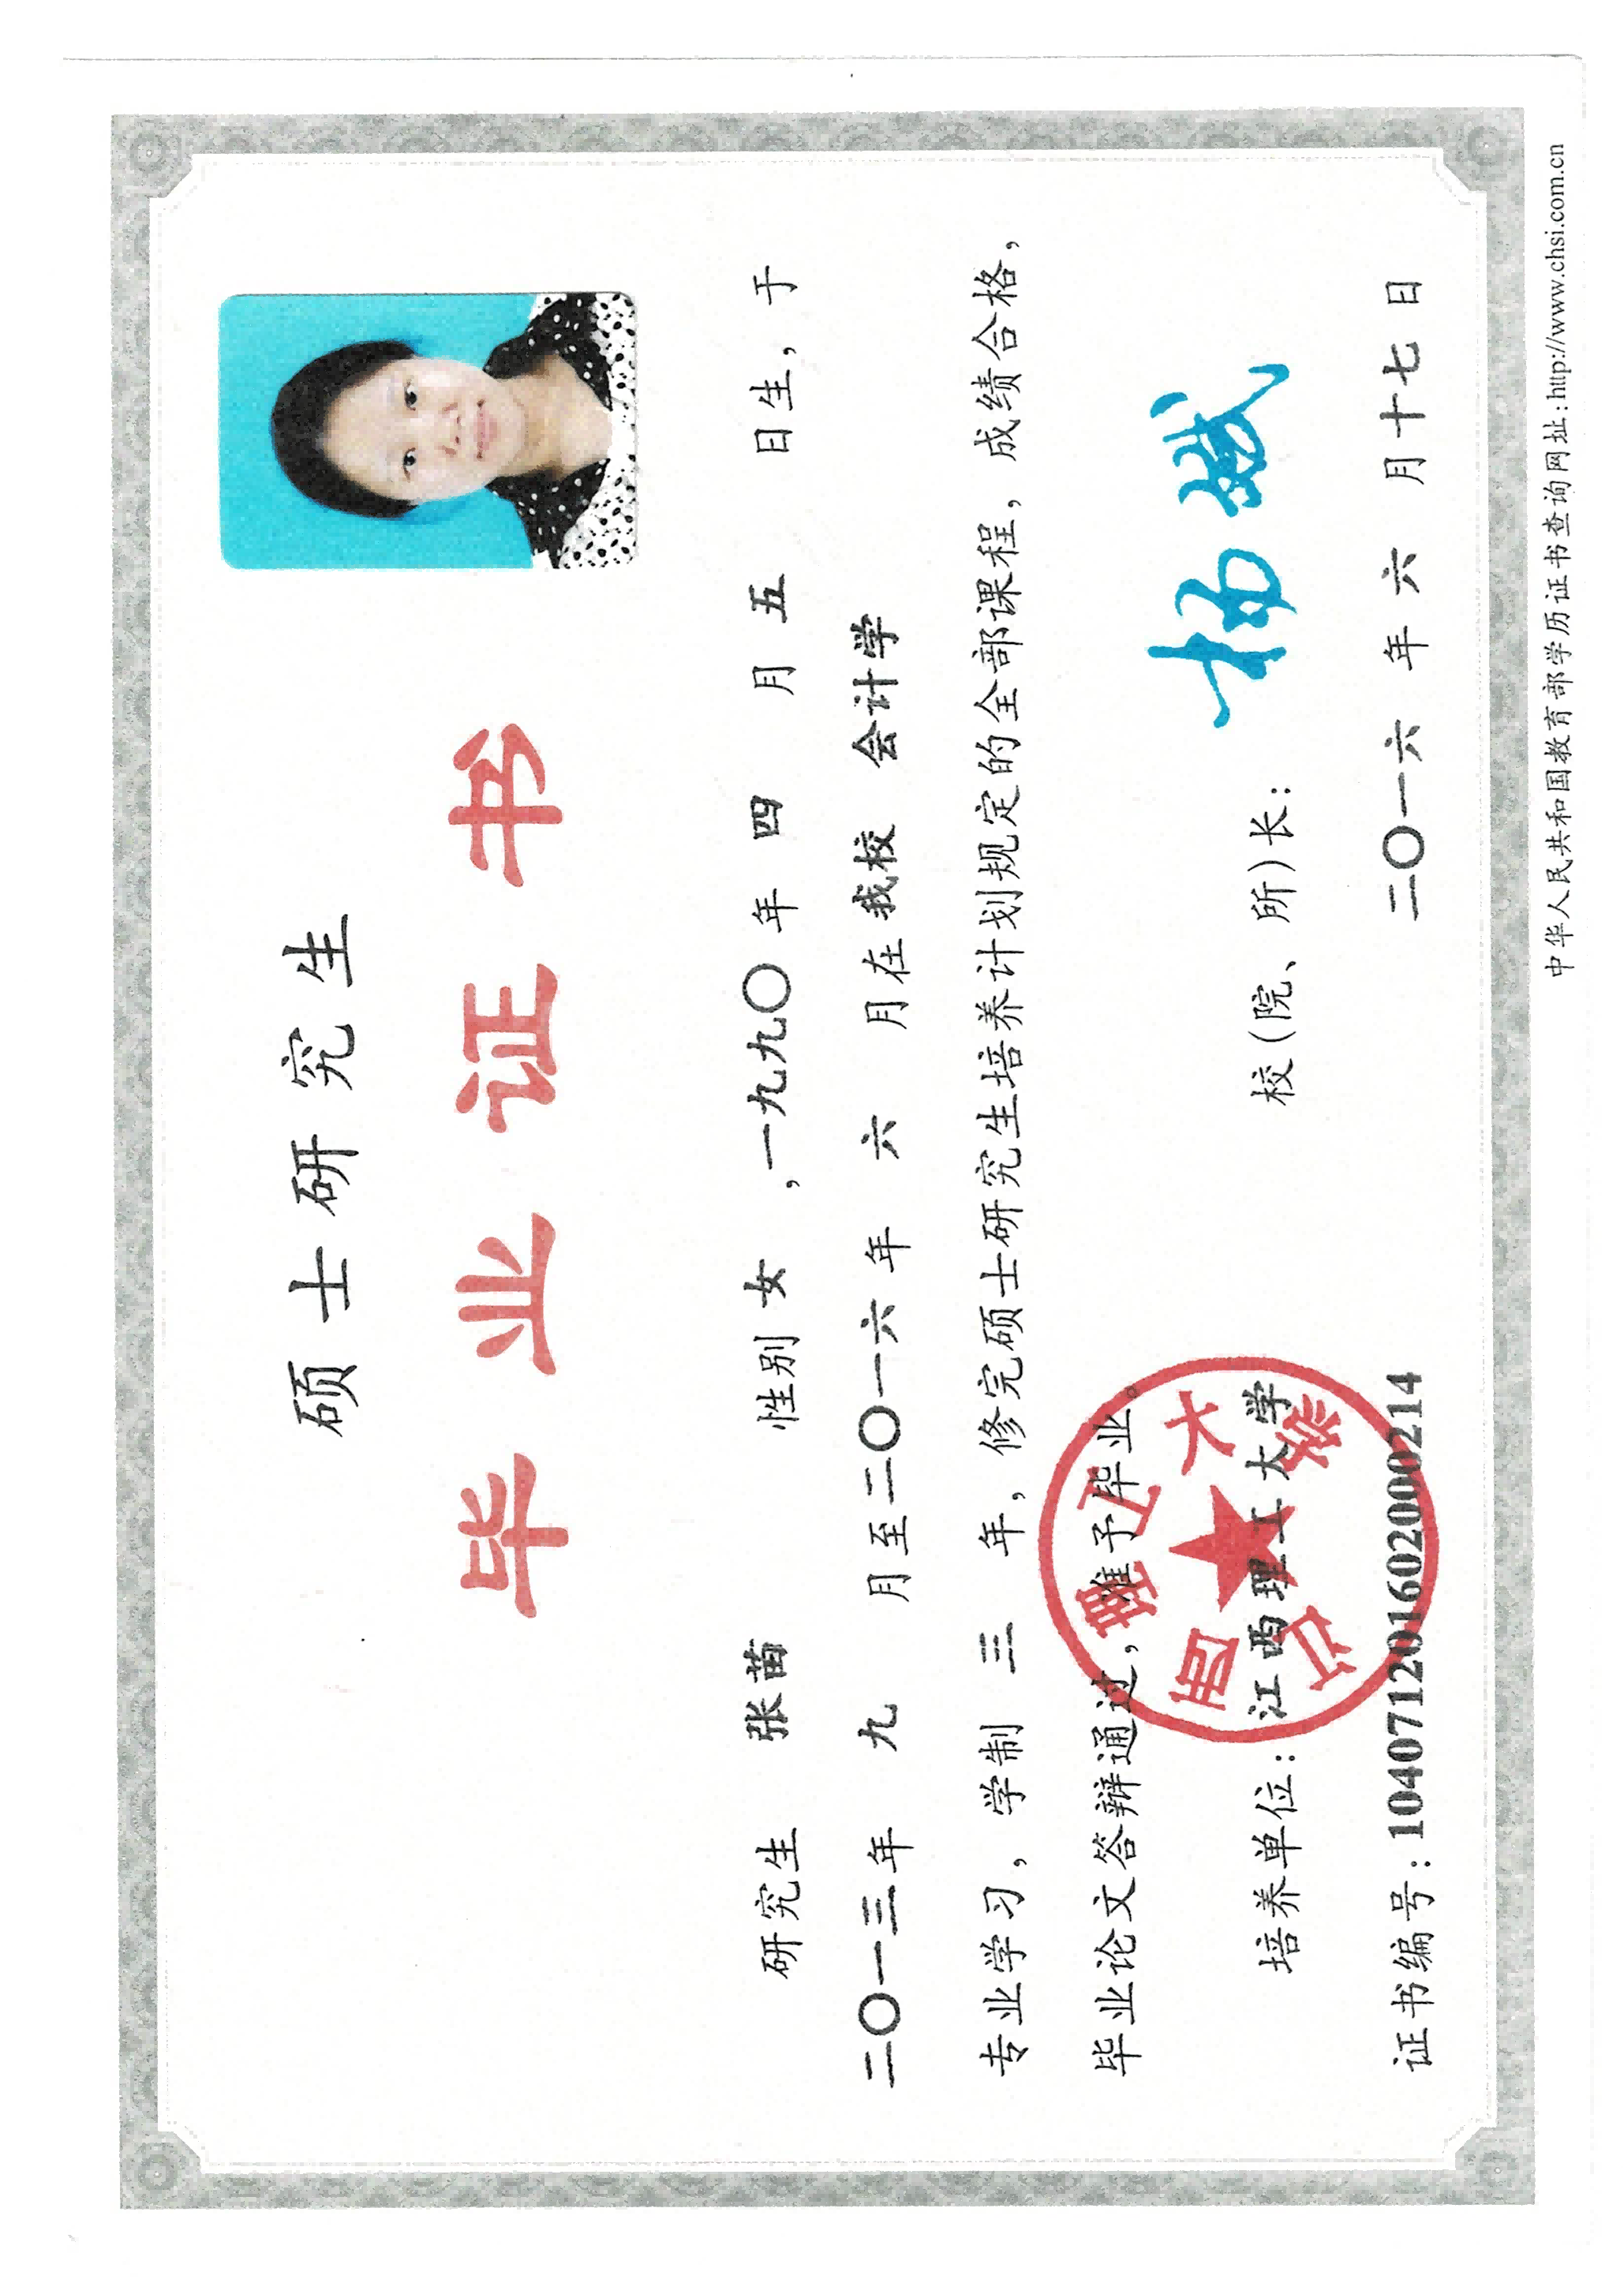 硕士研究生
毕业证书
研究生 张苗 性别 女 ,一九九〇年 四 月 五 日生，于
二〇一三年 九 月至二〇一六年 六 月在 我校 会计学
专业学习，学制 三 年，修完硕士研究生培养计划规定的全部课程，成绩合格，
毕业论文答辩通过，准予毕业。
江西理工大学
培养单位：江西理工大学
校（院、所）长：
证书编号：104071201602000214
二〇一六 年 六 月 十七 日
中华人民共和国教育部学历证书查询网址：http://www.chsi.com.cn